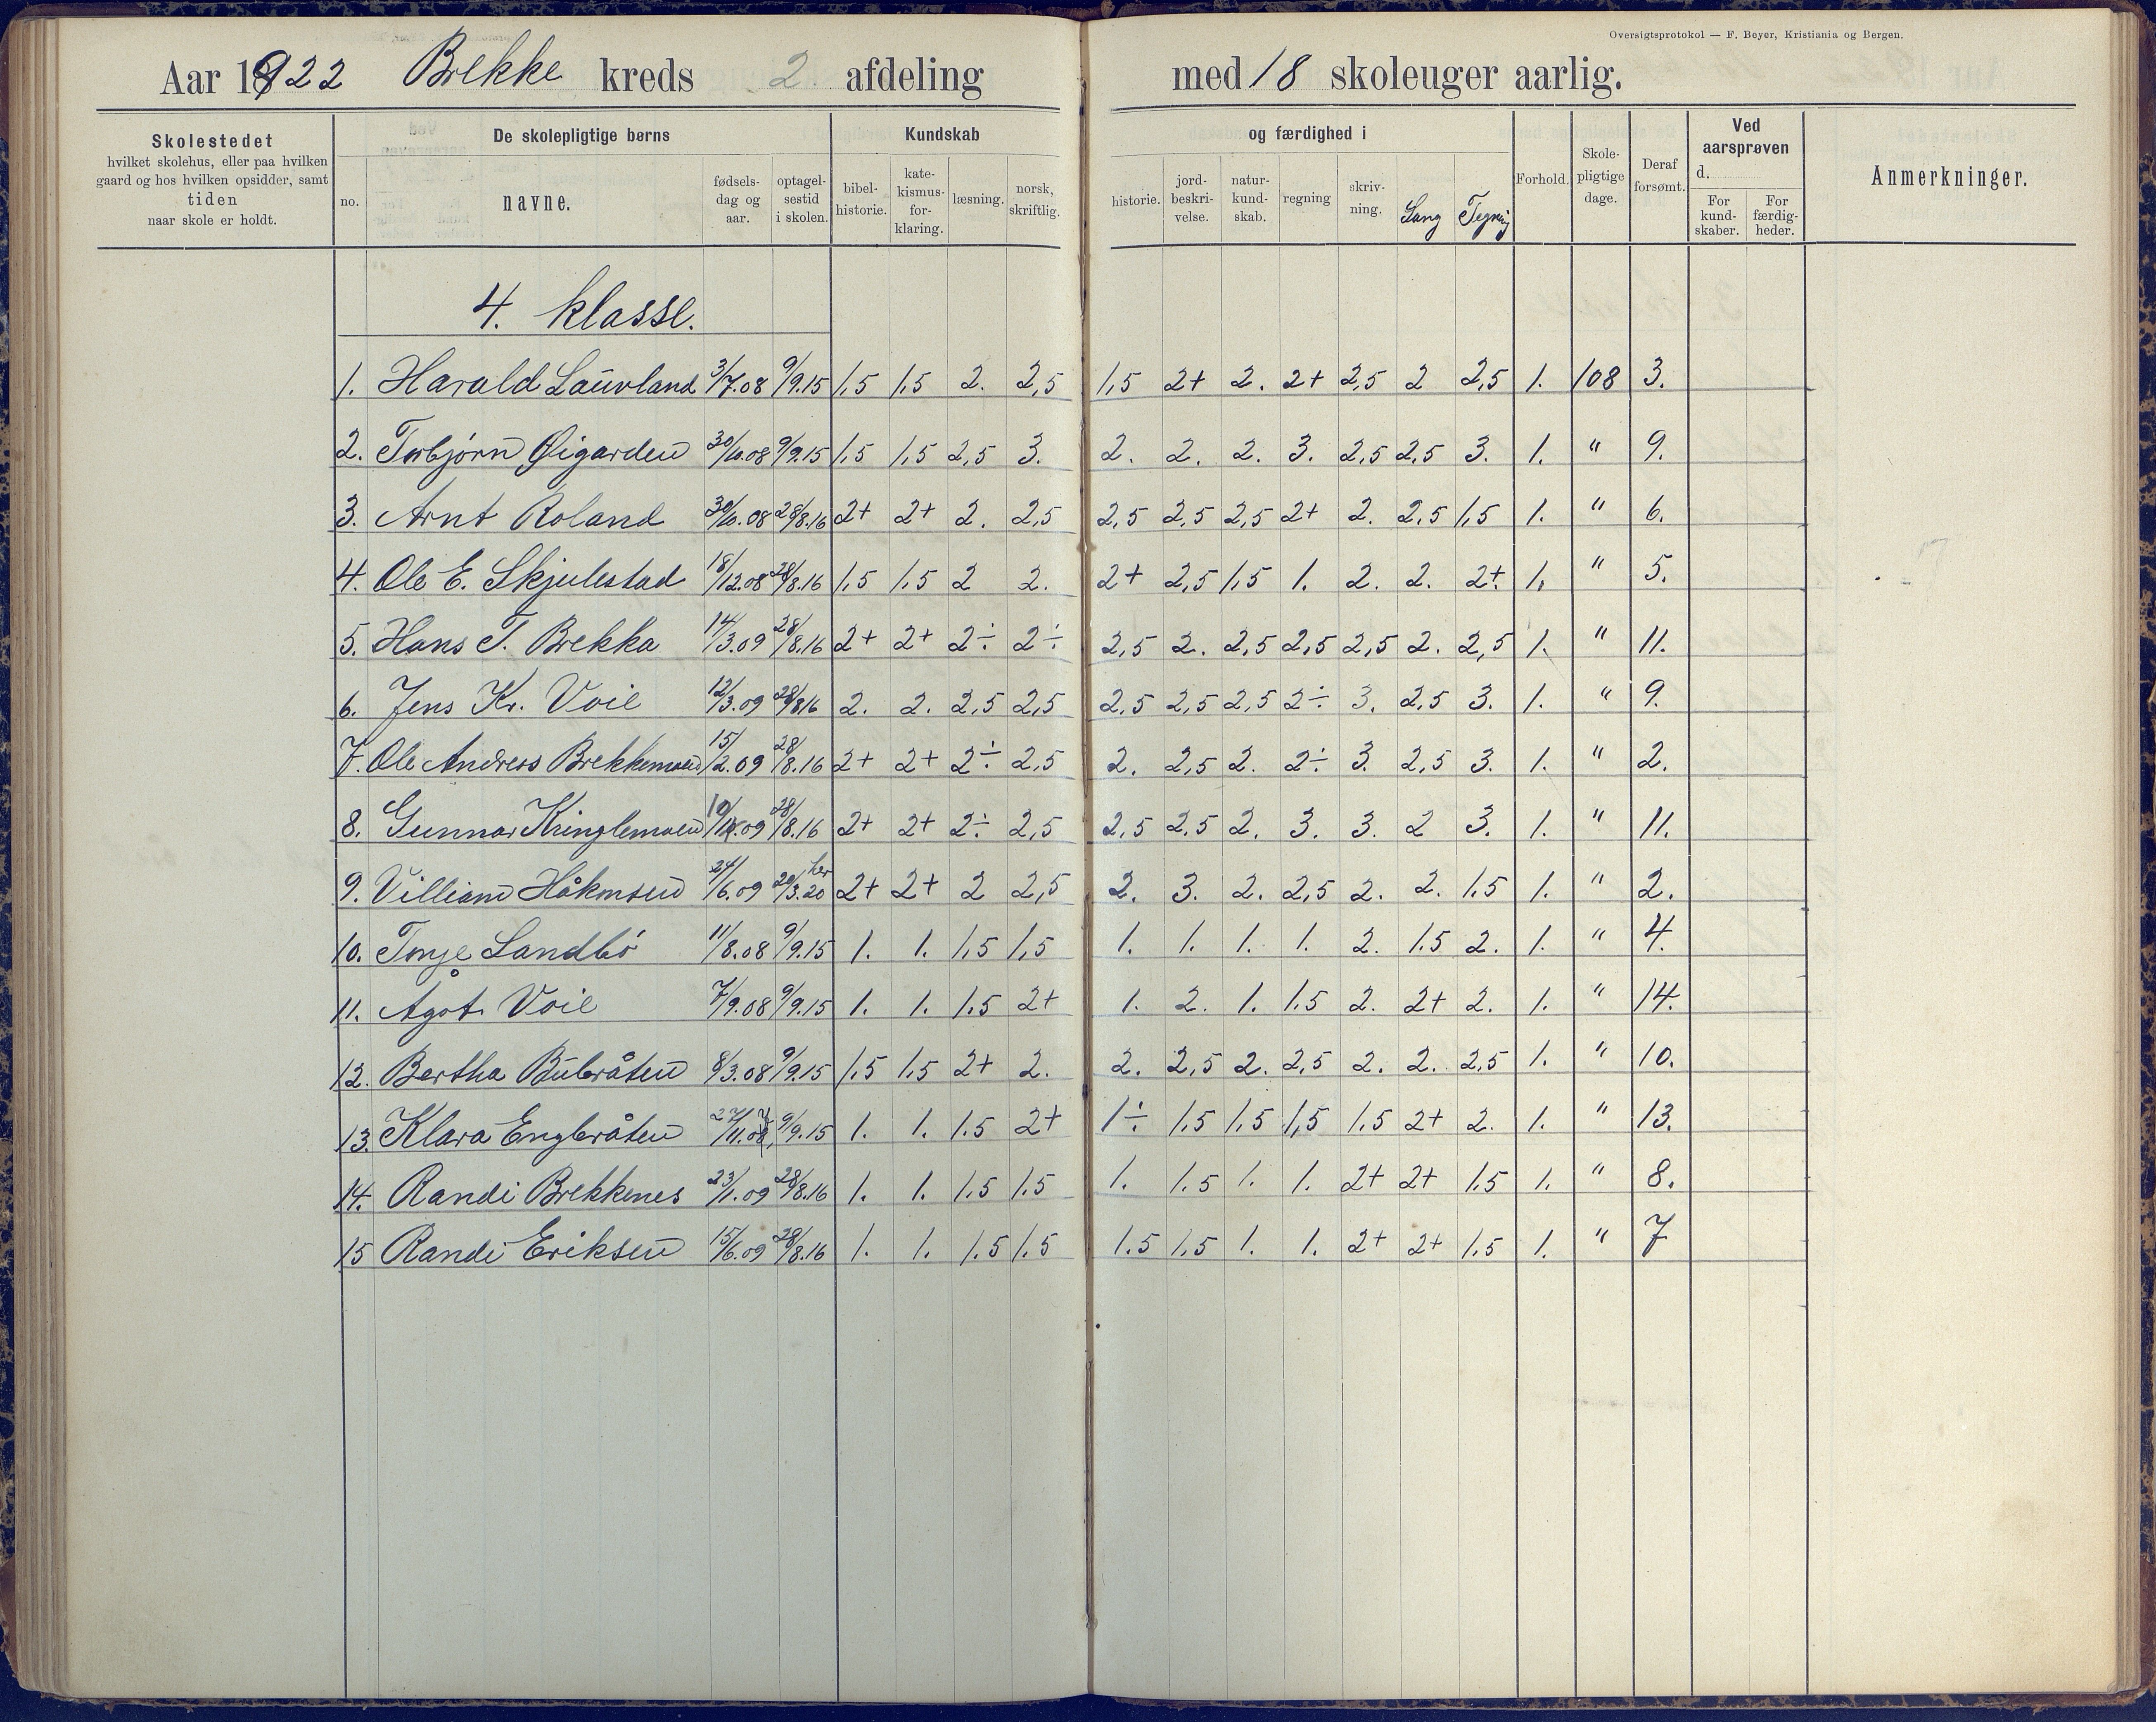 Oversigtsprotokol — F. Beyer, Kristiania og Bergen.
Aar 1922 Brekke kreds 2 afdeling med 18 skoleuger aarlig.
Skolestedet hvilket skolehus, eller paa hvilken gaard og hos hvilken opsidder, samt tiden naar skole er holdt.
De skolepligtige børns
no. navne. fødsels-dag og aar. optagel-sestid i skolen.
Kundskab og færdighed i
bibel-historie. kate-kismus-for-klaring. læsning. norsk, skriftlig. historie. jord-beskri-velse. natur-kund-skab. regning skriv-ning. Sang Tegning
Forhold. Skole-pligtige dage. Deraf forsømt.
Ved aarsprøven d.
For kund-skaber. For færdig-heder.
Anmerkninger.
4. klasse.
1. Harald Lauvland 3/7.08 9/9.15 1,5 1,5 2. 2,5 1,5 2+ 2. 2+ 2,5 2 2,5 1. 108 3.
2. Torbjørn Øigarden 30/10.08 9/9.15 1,5 1,5 2,5 3. 2. 2. 2. 3. 2,5 2,5 3. 1. " 9.
3. Arnt Roland 30/10.08 28/8.16 2+ 2+ 2. 2,5 2,5 2,5 2,5 2+ 2. 2,5 1,5 1. " 6.
4. Ole E. Skjulestad 18/12.08 28/8.16 1,5 1,5 2 2. 2+ 2,5 1,5 1. 2. 2. 2+. 1. " 5.
5. Hans T. Brekka 14/3.09 28/8.16 2+ 2+ 2÷ 2÷ 2,5 2. 2,5 2,5 2,5 2. 2,5 1. " 11.
6. Jens Kr. Voie 12/3.09 28/8.16 2. 2. 2,5 2,5 2,5 2,5 2,5 2÷ 3. 2,5 3. 1. " 9.
7. Ole Andreas Brekkemoen 15/2.09 28/8.16 2+ 2+ 2÷ 2,5 2. 2,5 2. 2÷ 3. 2,5 3. 1. " 2.
8. Gunnar Kringlemoen .09 28/8.16 2+ 2+ 2÷ 2,5 2,5 2,5 2. 3. 3. 2 3. 1. " 11.
9. Villiam Håkonsen 24/6.09 her 20/3.20 2+ 2+ 2 2,5 2. 3. 2. 2,5 2. 2. 1.5 1. " 2.
10. Tonje Landbö 11/8.08 9/9.15 1. 1. 1,5 1,5 1. 1. 1. 1. 2. 1.5 2. 1. " 4.
11. Ågot Voie 7/9.08 9/9.15 1. 1. 1.5 2+ 1. 2. 1. 1.5 2. 2+ 2. 1. " 14.
12. Bertha Bubråten 8/3.08 9/9.15 1,5 1,5 2+ 2. 2. 2,5 2. 2,5 2. 2. 2,5 1. " 10.
13. Klara Engbråten 27/11.08 9/9.15 1. 1. 1.5 2+ 1÷ 1,5 1,5 1,5 1.5 2+ 2. 1. " 13.
14. Randi Brekkenes 23/1.09 28/8.16 1. 1. 1.5 1.5 1. 1.5 1. 1. 2+ 2+ 1.5 1. " 8.
15 Randi Eriksen 15/6.09 28/8.16 1. 1. 1.5 1.5 1.5 1,5 1. 1. 2+ 2+ 1.5 1. " 7